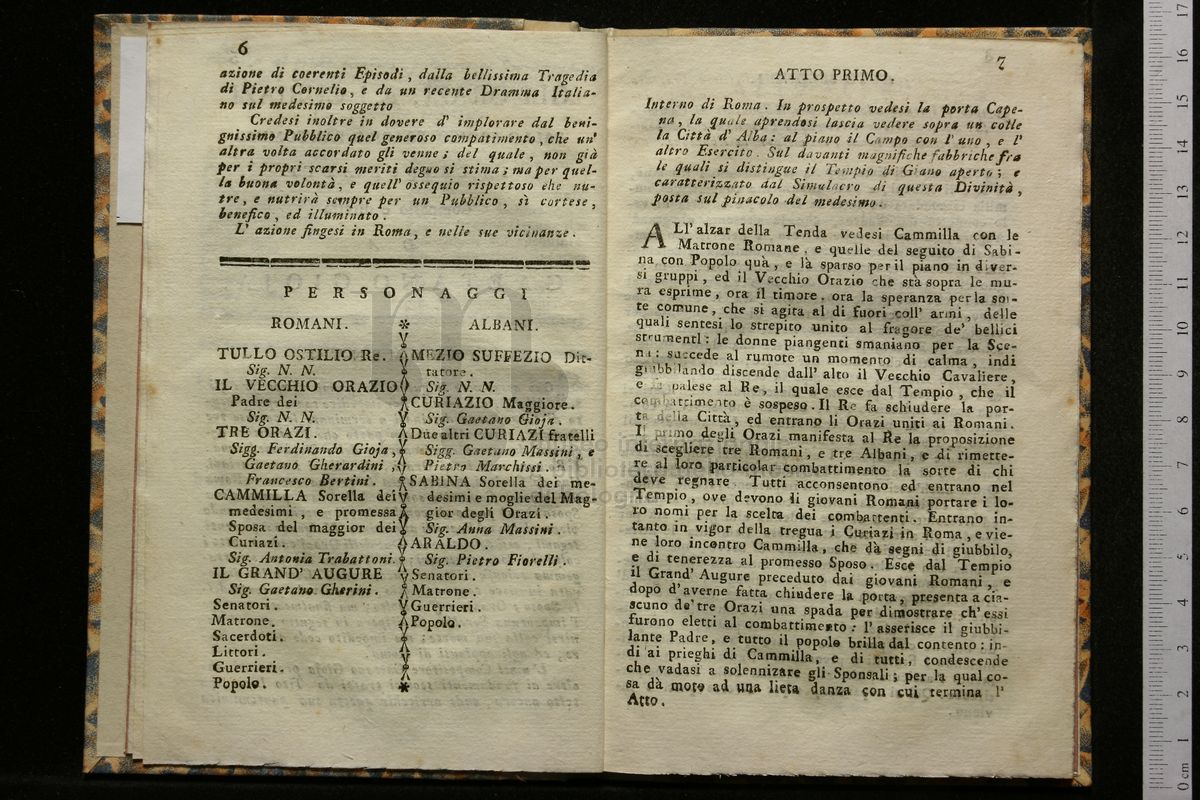 6
azione di coerenti Episodi, dalla bellissima Tragedia
di Pietro Cornelio, e da un recente Dramma Italia-
no sul medesimo soggetto
Credesi inoltre in dovere d' implorare dal beni-
gnissimo Pubblico quel generoso compatimento, che un'
altra volta accordato gli venne; del quale, non già
per i propri scarsi meriti degno si stima; ma per quel-
la buona volontà, e quell' ossequio rispettoso che nu-
tre, e nutrirà sempre per un Pubblico, sì cortese,
benefico, ed illuminato.
L' azione fingesi in Roma, e nelle sue vicinanze.
PERSONAGGI
ROMANI.
TULLO OSTILIO Re.
Sig. N. N.
IL VECCHIO ORAZIO
Padre dei
Sig. N. N.
TRE ORAZI.
Sigg. Ferdinando Gioja,
Gaetano Gherardini,
Francesco Bertini.
CAMMILLA Sorella dei
medesimi, e promessa
Sposa del maggior dei
Curiazi.
Sig. Antonia Trabattoni.
IL GRAND' AUGURE
Sig. Gaetano Gherini.
Senatori.
Matrone.
Sacerdoti.
Littori.
Guerrieri.
Popolo.
ALBANI.
MEZIO SUFFEZIO Dit-
tatore.
Sig. N. N.
CURIAZIO Maggiore.
Sig. Gaetano Gioja.
Due altri CURIAZI fratelli
Sigg. Gaetano Massini, e
Pietro Marchissi.
SABINA Sorella dei me-
desimi e moglie del Mag-
gior degli Orazi.
Sig. Anna Massini.
ARALDO.
Sig. Pietro Fiorelli.
Senatori.
Matrone.
Guerrieri.
Popolo.
7
ATTO PRIMO.
Interno di Roma. In prospetto vedesi la porta Cape-
na, la quale aprendosi lascia vedere sopra un colle
la Città d' Alba: al piano il Campo con l' uno, e l'
altro Esercito. Sul davanti magnifiche fabbriche fra
le quali si distingue il Tempio di Giano aperto; e
caratterizzato dal Simulacro di questa Divinità,
posta sul pinacolo del medesimo.
ALl' alzar della Tenda vedesi Cammilla con le
Matrone Romane, e quelle del seguito di Sabi-
na con Popolo quà, e là sparso per il piano in diver-
si gruppi, ed il Vecchio Orazio che stà sopra le mu-
ra esprime, ora il timore, ora la speranza per la sor-
te comune, che si agita al di fuori coll' armi, delle
quali sentesi lo strepito unito al fragore de' bellici
strumenti: le donne piangenti smaniano per la Sce-
na: succede al rumote un momento di calma, indi
giubbilando discende dall' alto il Vecchio Cavaliere,
e fa palese al Re, il quale esce dal Tempio, che il
combattimento è sospeso. Il Re fa schiudere la por-
ta della Città, ed entrano li Orazi uniti ai Romani.
Il primo degli Orazi manifesta al Re la proposizione
di scegliere tre Romani, e tre Albani, e di rimette-
re al loro particolar combattimento la sorte di chi
deve regnare. Tutti acconsentono ed entrano nel
Tempio, ove devono li giovani Romani portare i lo-
ro nomi per la scelta dei combattenti. Entrano in-
tanto in vigor della tregua i Curiazi in Roma, e vie-
ne loro incontro Cammilla, che dà segni di giubbilo,
e di tenerezza al promesso Sposo. Esce dal Tempio
il Grand' Augure preceduto dai giovani Romani, e
dopo d'averne fatta chiudere la porta, presenta a cia-
scuno de' tre Orazi una spada per dimostrare ch' essi
furono eletti al combattimento: l' asserisce il giubbi-
lante Padre, e tutto il popolo brilla dal contento: in-
di ai prieghi di Cammilla, e di tutti, condescende
che vadasi a solennizare gli Sponsali; per la qual co-
sa dà moto ad una lieta danza con cui termina l'
Atto.